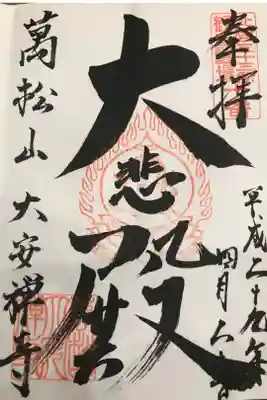 奉拝
平成二十九年
四月
大悲殿
萬松山大安禅寺